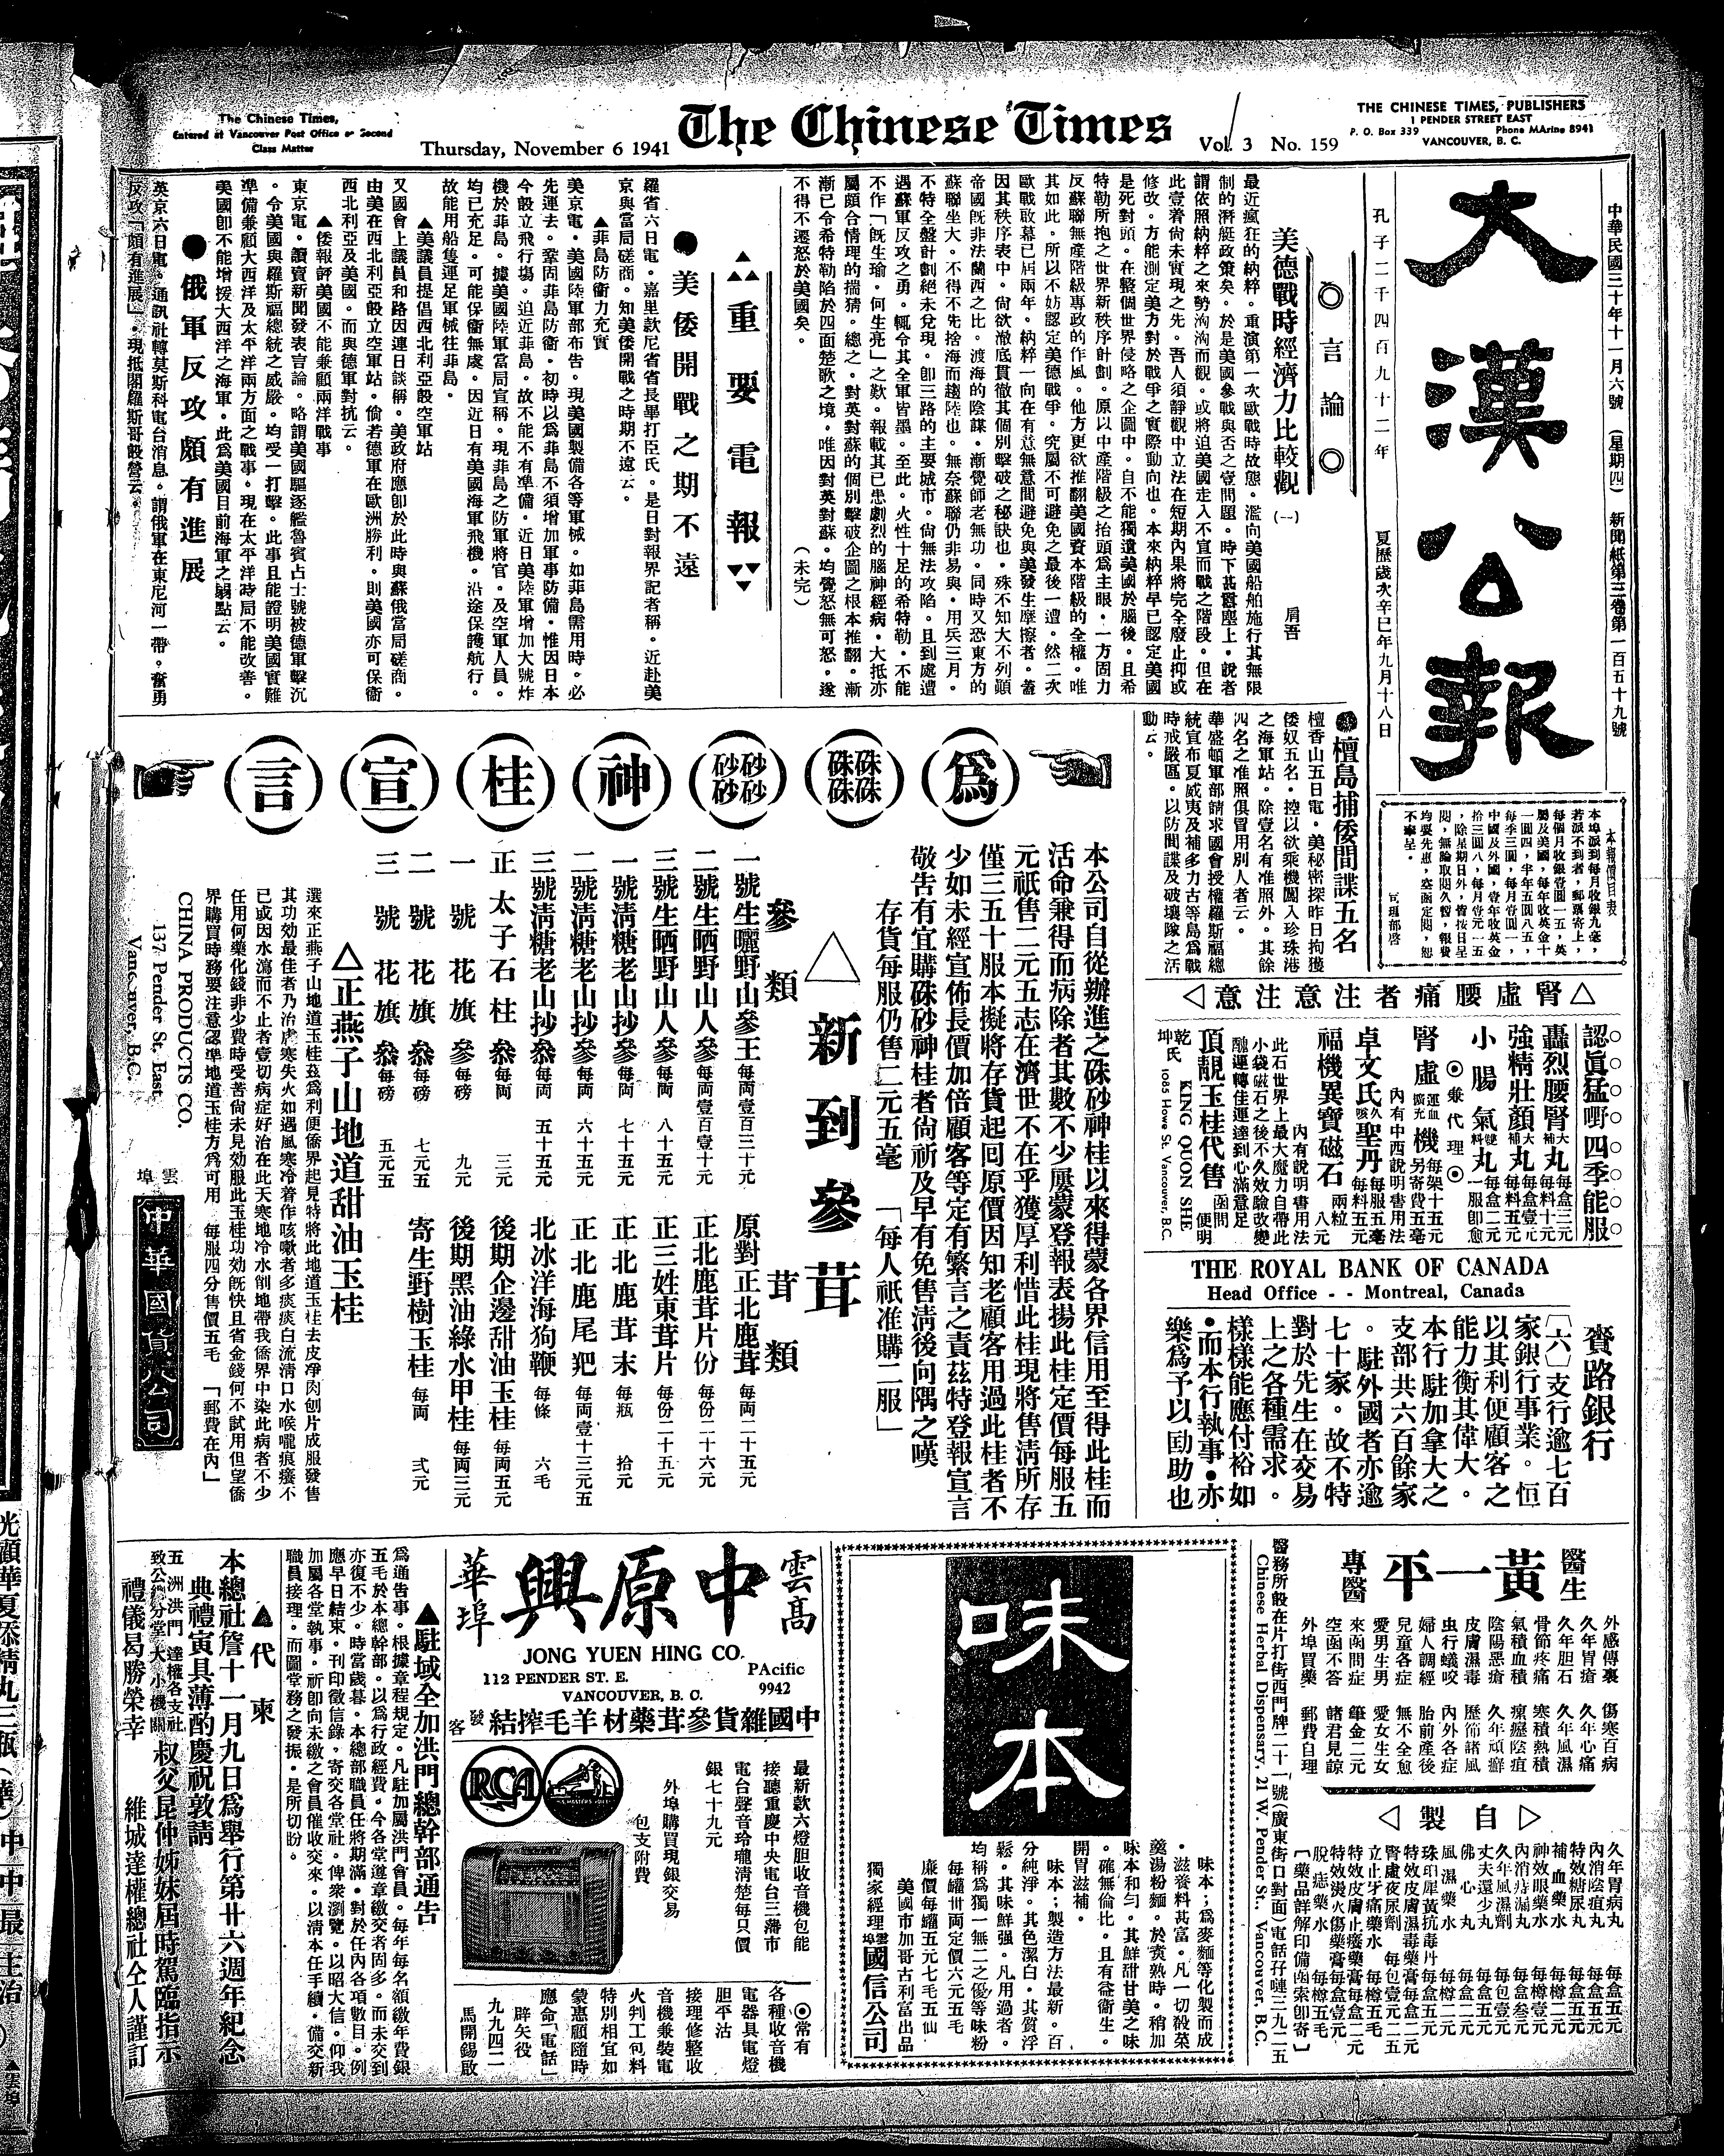 The Chinese Times,
Entered at Vancouver Post Office as Second
Class Matter
Thursday, November 6 1941
The Chinese Times
Vol. 3 No. 159
THE CHINESE TIMES, PUBLISHERS
1 PENDER STREET EAST
P. O. Box 339 Phone MArine 8941
VANCOUVER, B. C.
中華民國三十年十一月六號 (星期四) 新聞紙第三卷第一百五十九號
大漢公報
孔子二千四百九十二年
夏歷歲次辛巳年九月十八日
本報價目表
◎言論◎
美德戰時經濟力比較觀 (一)
肩吾
最近瘋狂的納粹。重演第一次歐戰時故態。濫向美國船舶施行其無限
制的潛艇政策矣。於是美國參戰與否之壹問題。時下甚囂塵上。說者
謂依照納粹之來勢洶洶而觀。或將迫美國走入不宣而戰之階段。但在
此壹着尚未實現之先。吾人須靜觀中立法在短期內果將完全廢止抑或
修改。方能測定美方對於戰爭之實際動向也。本來納粹早已認定美國
是死對頭。在整個世界侵略之企圖中。自不能獨遺美國於腦後。且希
特勒所抱之世界新秩序計劃。原以中產階級之抬頭爲主眼。一方固力
反蘇聯無產階級專政的作風。他方更欲推翻美國資本階級的全權。唯
其如此。所以不妨認定美德戰爭。究屬不可避免之最後一遭。然二次
歐戰敢幕已屆兩年。納粹一向在有意無意間避免與美發生摩擦者。蓋
因其秩序表中。尙欲澈底貫徹其個別擊破之秘訣也。殊不知大不列顛
帝國旣非法蘭西之比。渡海的陰謀。漸覺師老無功。同時又恐東方的
蘇聯坐大。不得不先捨海而趨陸也。無奈蘇聯仍非易與。用兵三月。
不特全盤計劃絕未兌現。卽三路的主要城市。尙無法攻陷。且到處遭
遇蘇軍反攻之勇。輒令其全軍皆墨。至此。火性十足的希特勒。不能
不作「旣生瑜。何生亮」之歎。報載其已患劇烈的腦神經病。大抵亦
屬頗合情理的揣猜。總之。對英對蘇的個別擊破企圖之根本推翻。漸
漸已令希特勒陷於四面楚歌之境。唯因對英對蘇。均覺怒無可怒。遂
不得不遷怒於美國矣。
(未完)
重要電報
●美倭開戰之期不遠
羅省六日電。嘉里欵尼省省長畢打臣氏。是日對報界記者稱。近赴美
京與當局磋商。知美倭開戰之時期不遠云。
▲菲島防衞力充實
美京電。美國陸軍部布吿。現美國製備各等軍械。如菲島需用時。必
先運去。鞏固菲島防衞。初時以爲菲島不須增加軍事防備。惟因日本
今設立飛行塲。迫近菲島。故不能不有準備。近日美陸軍增加大號炸
機於菲島。據美國陸軍當局宣稱。現菲島之防軍將官。及空軍人員。
均已充足。可能保衞無處。因近日有美國海軍飛機。沿途保護航行。
故能用船隻運足軍械往菲島。
▲美議員提倡西北利亞設空軍站
又國會上議員和路因連日談稱。美政府應卽於此時與蘇俄當局磋商。
由美在西北利亞設立空軍站。倘若德軍在歐洲勝利。則美國亦可保衞
西北利亞及美國。而與德軍對抗云。
▲倭報評美國不能兼顧兩洋戰事
東京電。讀賣新聞發表言論。略謂美國驅逐艦魯賓占士號被德軍擊沉
。令美國與羅斯福總統之威嚴。均受一打擊。此事且能證明美國實難
準備兼顧大西洋及太平洋兩方面之戰事。現在太平洋時局不能改善。
美國卽不能增援大西洋之海軍。此爲美國目前海軍之弱點云。
●俄軍反攻頗有進展
英京六日電。通訊社轉莫斯科電台消息。謂俄軍在東尼河一帶。奮勇
反攻「頗有進展」。現抵閣羅斯哥設營云。
●檀島捕倭間諜五名
檀香山五日電。美秘密探昨日拘獲
倭奴五名。控以欲乘機闖入珍珠港
之海軍站。除壹名有准照外。其餘
四名之准照俱冒用別人者云。
華盛頓軍部請求國會授權羅斯福總
統宣布夏威夷及補多力古等島爲戰
時戒嚴區。以防間諜及破壞隊之活
動云。
爲硃硃硃硃砂砂砂砂神桂宣言
本公司自從辦進之硃砂神桂以來得蒙各界信用至得此桂而
活命兼得而病除者其數不少屢蒙登報表揚此桂定價每服五
元祇售二元五志在濟世不在乎獲厚利惜此桂現將售淸所存
僅三五十服本擬將存貨起回原價因知老顧客用過此桂者不
少如未經宣佈長價加倍顧客等定有繁言之責茲特登報宣言
敬吿有宜購硃砂神桂者尙祈及早有免售淸後向隅之嘆
存貨每服仍售二元五毫 「每人祇准購二服」
△新到參茸
參類
一號生曬野山參王 每両壹百三十元
二號生晒野山人參 每両壹百壹十元
三號生晒野山人參 每両 八十五元
一號淸糖老山抄參 每両 七十五元
二號淸糖老山抄參 每両 六十五元
三號淸糖老山抄叅 每両 五十五元
正太子石柱叅 每両 三元
一號花旗參 每磅 九元
二號花旗叅 每磅 七元五
三號花旗叅 每磅 五元五
茸類
原對正北鹿茸 每両二十五元
正北鹿茸片份 每份二十六元
正三姓東茸片 每份二十五元
正北鹿茸末 每瓶 拾元
正北鹿尾犯 每両壹十三元五
北冰洋海狗鞭 每條 六毛
後期企邊甜油玉桂 每両五元
後期黑油綠水甲桂 每両三元
寄生野樹玉桂 每両 弍元
△正燕子山地道甜油玉桂
選來正燕子山地道玉桂茲爲利便僑界起見特將此地道玉桂去皮净肉刨片成服發售
其功効最佳者乃治虛寒失火如遇風寒冷着作咳嗽者多痰痰白流淸口水喉嚨痕癢不
已或因水瀉而不止者壹切病症好治在此天寒地冷水劊地帶我僑界中染此病者不少
任用何藥化錢非少費時受苦尙未見効服此玉桂功効旣快且省金錢何不試用但望僑
界購買時務要注意認準地道玉桂方爲可用 每服四分售價五毛 「郵費在內」
CHINA PRODUCTS CO.
137 Pender St. East
Vancouver, B.C.
雲埠
中華國貨公司
△腎虛腰痛者注意注意◁
認眞猛嘢四季能服
轟烈腰腎大補丸 每盒三元 每料十元
強精壯顏大補丸 每盒壹元 每料五元
小腸氣雙料丸 每盒二元 一服卽愈
◎兼代理◎
腎虛運血擴充機 每架十五元 另寄費五毫
內有中西說明書用法
卓文氏久咳聖丹 每服五毫 每料五元
福機異寶磁石 兩粒 八元
內有說明書用法
此石世界上最大魔力自帶此
小袋磁石之後不久效驗改變
醜運轉佳運達到心滿意足
頂靚玉桂代售 函問便明
乾坤氏 KING QUON SHE
1085 Howe St. Vancouver, B.C.
THE ROYAL BANK OF CANADA
Head Office - - Montreal, Canada
賚路銀行
〔六〕支行逾七百
家銀行事業。恒
以其利便顧客之
能力衡其偉大。
本行駐加拿大之
支部共六百餘家
。駐外國者亦逾
七十家。故不特
對於先生在交易
上之各種需求。
樣樣能應付裕如
●而本行執事●亦
樂爲予以助也
醫生 黃一平 專醫
外感傷裏 傷寒百病
久年胃瘡 久年心痛
久年胆石 久年風濕
骨節疼痛 寒積熱積
氣積血積 瘰癧陰疽
陰陽惡瘡 久年頑癬
皮膚濕毒 歷節諸風
虫行蟻咬 內外各症
婦人調經 胎前產後
兒童各症 無不全愈
愛男生男 愛女生女
來函問症 筆金二元
空函不答 諸君見諒
外埠買藥 郵費自理
▷自製◁
久年胃病丸 每盒五元
內消陰疽丸 每盒五元
特效糖尿丸 每盒五元
補血藥水 每樽二元
神效眼藥水 每樽壹元
內消痔漏丸 每盒叁元
久年風濕劑 每包壹元
丈夫還少丸 每盒五元
佛心丸 每盒二元
風濕藥水 每樽二元
珠珀犀黃抗毒片 每盒五元
特效皮膚濕毒藥膏 每盒二元
腎處夜尿劑 每包壹元二五
立止牙痛藥水 每樽五毛
特效皮膚止癢藥膏 每盒二元
特效燙火傷藥膏 每盒壹元
脫痣藥水 每樽五毛
〔藥品詳解印備函索卽寄〕
醫務所設在片打街西門牌二十一號(廣東街口對面)電話孖嗹三九二五
Chinese Herbal Dispensary, 21 W. Pender St., Vancouver, B.C.
味本
味本;爲麥麵等化製而成
。滋養料甚富。凡一切殺菜
羹湯粉麵。於煑熟時。稍加
味本和勻。其鮮甜甘美之味
。確無倫比。且有益衛生。
開胃滋補。
味本;製造方法最新。百
分純淨。其色潔白。其質浮
鬆。其味鮮强。凡用過者。
均稱爲獨一無二之優等味粉
每罐卅両定價六元五毛
廉價每罐五元七毛五仙
美國市加哥古利富出品
獨家經理 雲埠國信公司
雲高華埠
中原興
JONG YUEN HING CO.
112 PENDER ST. E.
VANCOUVER, B. C.
PAcific
9942
中國雜貨參茸藥材羊毛搾結發客
RCA
最新欵六燈胆收音機包能
接聽重慶中央電台三藩市
電台聲音玲瓏淸楚每只價
銀七十九元
外埠購買現銀交易
包支附費
◎常有
各種收音機
電器具電燈
胆平沽
接理修整收
音機兼裝電
火判工包料
特別相宜如
蒙惠顧隨時
應命「電話」
九九四二
辟矢役
馬開錫啟
▲駐域全加洪門總幹部通告
爲通告事。根據章程規定。凡駐加屬洪門會員。每年每名額繳年費銀
五毛於本總幹部。以爲行政經費。今各堂遵章繳交者固多。而未交到
亦復不少。時當歲暮。本總部職員任將期滿。對於任內各項數目。例
應早日結束。刊印徵信錄。寄交各堂社。俾衆瀏覽。以昭大信。仰我
加屬各堂執事。祈卽向未繳之會員催收交來。以清本任手續。備交新
職員接理。而圖堂務之發振。是所切盼。
▲代柬
本總社詹十一月九日爲舉行第廿六週年紀念
典禮寅具薄酌慶祝敦請
五洲洪門達權各支社
致公總分堂大小機關 叔父昆仲姊妹屆時駕臨指示
禮儀曷勝榮幸 維城達權總社仝人謹訂